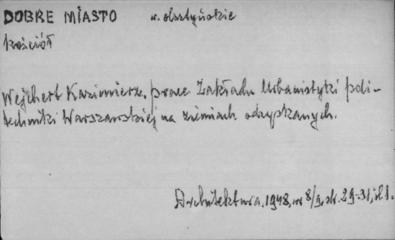 DOBRE MIASTO w. olsztyńskie
kościół
Wejchert Kazimierz, prace Zakładu Urbanistyki poli-
techniki Warszawskiej na ziemiach odzyskanych.
Architektura, 1948, nr 8/9, str. 29-31, il. 1.